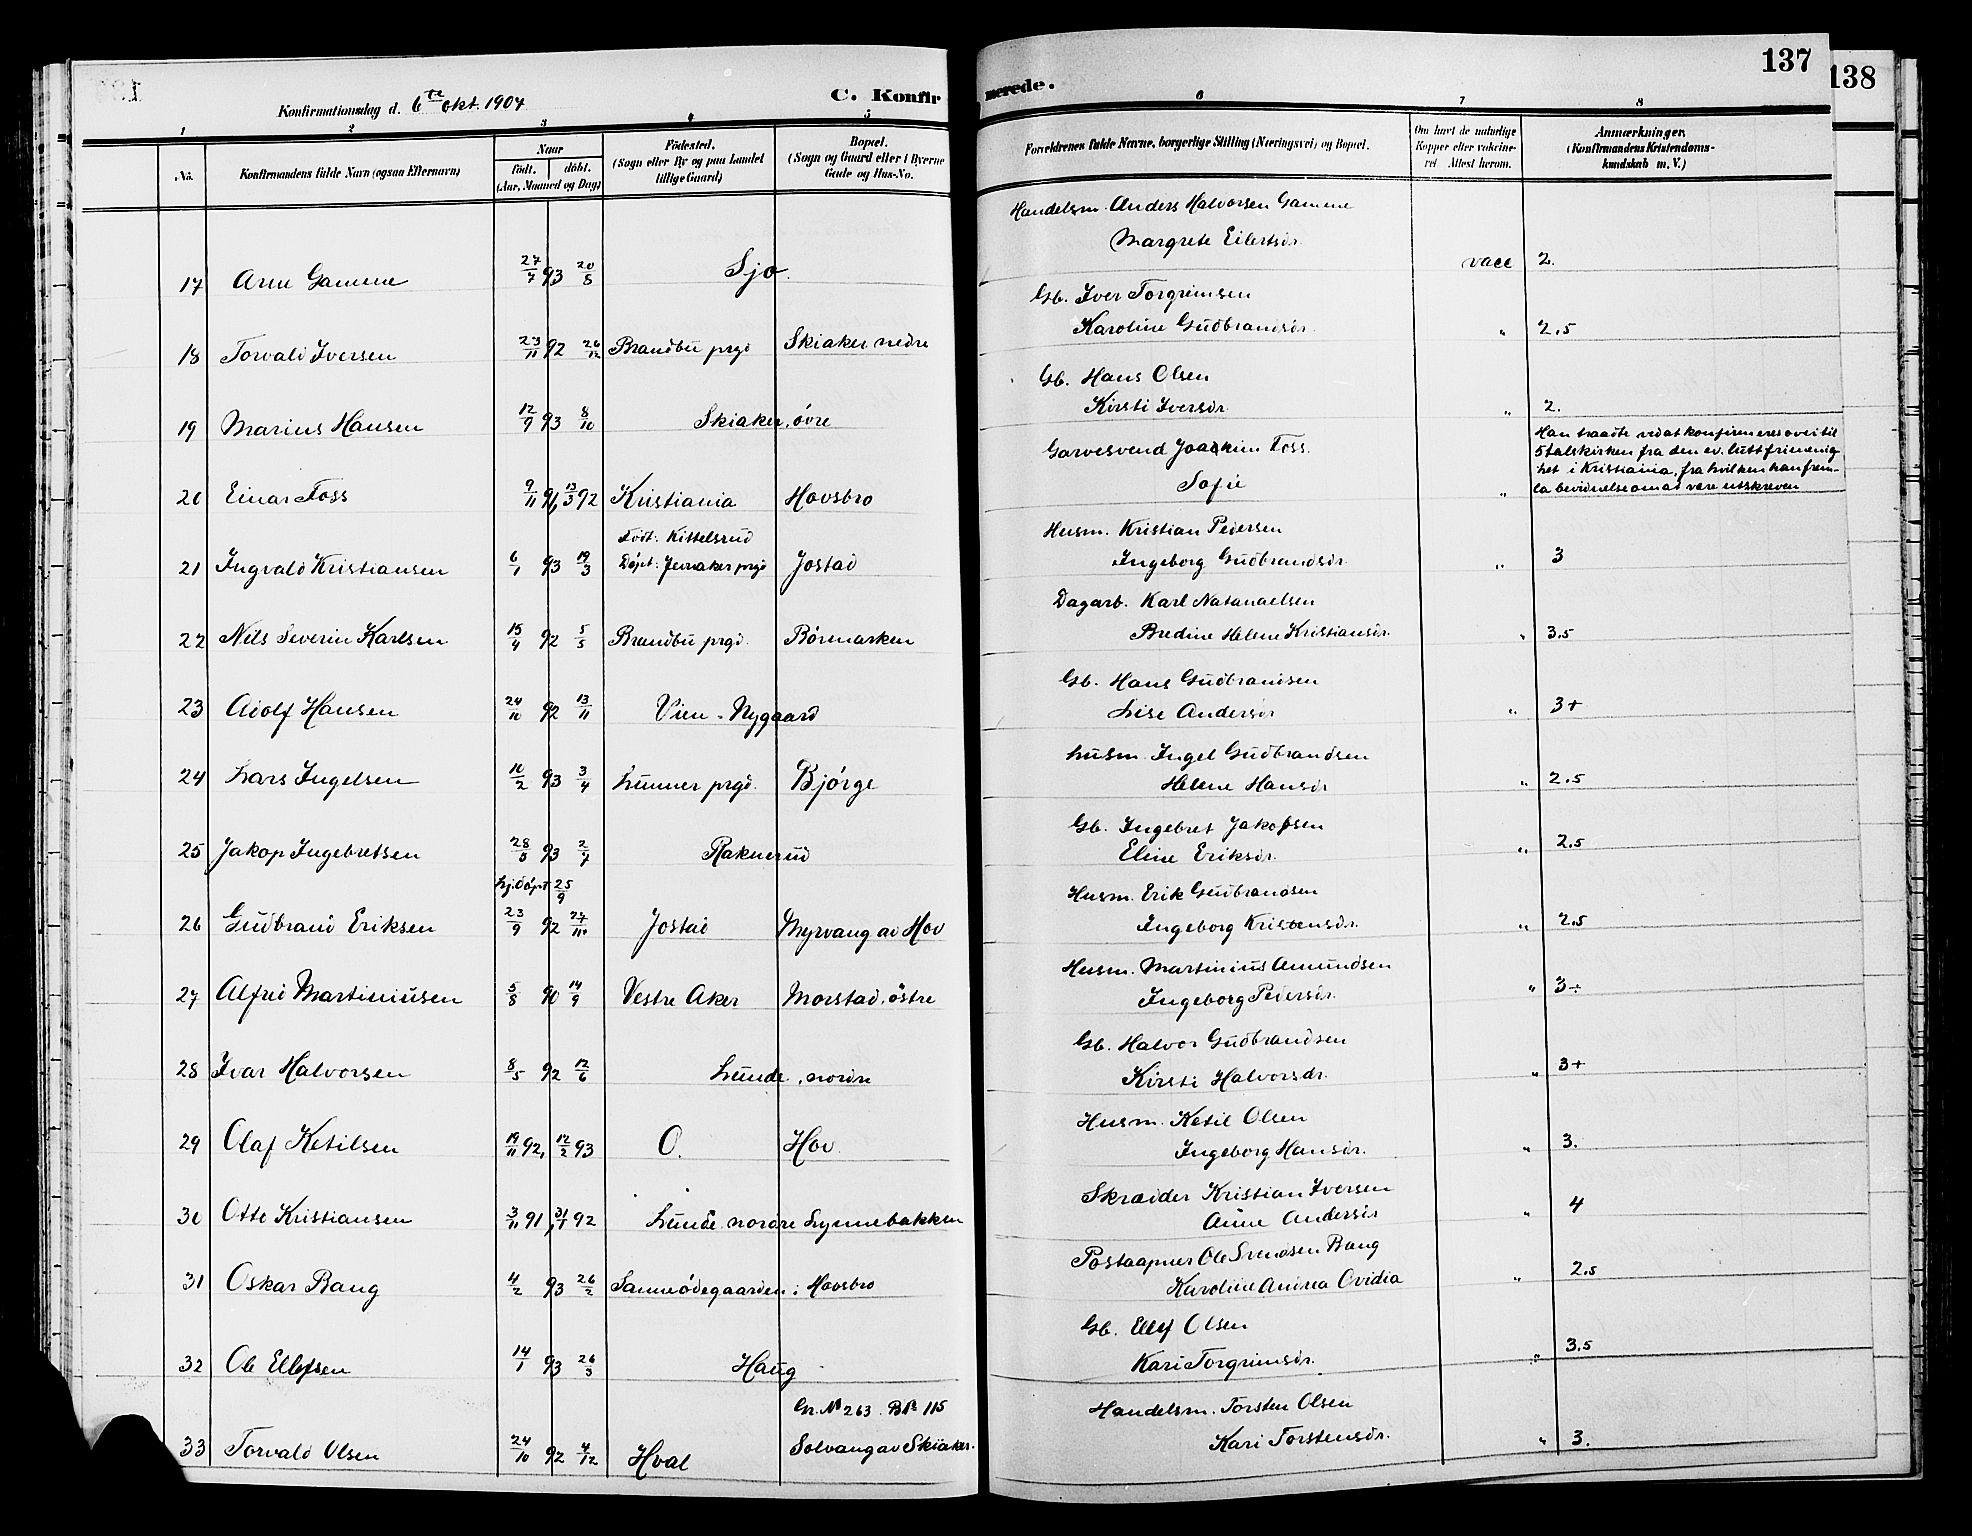 137
138
Konfirmationsdag d. 6te okt. 1907
C. Konfirmerede.
1 2 3 4 5 6 7 8
No.
Konfirmandens fulde Navn (ogsaa Efternavn)
Naar
födt. döbt.
(Aar, Maaned og Dag)
Födested.
(Sogn eller By og paa Landet
tillige Gaard)
Bopæl.
(Sogn og Gaard eller i Byerne
Gade og Hus-No.
Forældrenes fulde Navne, borgerlige Stilling (Næringsvei) og Bopæl.
Om havt de naturlige
Kopper eller vakcine-
ret Attest herom.
Anmærkninger.
(Konfirmandens Kristendoms-
kundskab m. V.)
Handelsm. Anders Halvorsen Gamme
Margrete Eilertsdr.
17 Arne Gamme 27/7 93 20/8 Sjo. vacc 2.
Gb. Iver Torgrimsen
Karoline Gudbrandsdr. " 2.5
18 Torvald Iversen 23/11 92 26/12 Brandbu prgd Skiaker nedre
Gb. Hans Olsen
Kirsti Iversdr. " 2.
19 Marius Hansen 12/9 93 8/10 Skiaker, övre
Garvesvend Joackim Foss.
Sofie "
Han traadte ved at konfirmeres over til
Stalskirken fra den ev. luth frimenig-
het i Kristiania, fra hvilken han frem-
la bevidnelse om at være utskreven
20 Einar Foss 9/11 91, 13/3 92 Kristiania Hovsbro
Husm. Kristian Pedersen
Ingeborg Gudbrandsdr. " 3
Födt: Kittelsrud
21 Ingvald Kristiansen 6/1 93 19/3 Döpt: Jevnaker prgd Jostad
Dagarb. Karl Natanaelsen
Bredine Helene Kristiansdr. " 3.5
22 Nils Severin Karlsen 15/4 92 5/5 Brandbu prgd. Börmarken
Gb. Hans Gudbrandsen
Lise Andersdr " 3+
23 Adolf Hansen 24/10 92 13/11 Vien - Nygaard
Husm. Ingel Gudbrandsen
Helene Hansdr " 2.5
24 Lars Ingelsen 10/2 93 3/4 Lunner prgd. Bjørge
Gb. Ingebret Jakopsen
Eline Eriksdr. " 2.5
25 Jakop Ingebretsen 28/5 93 2/7 Raknerud
Husm. Erik Gudbrandsen
Ingeborg Kristensdr. " 2.5
hj.döpt 25/9
26 Gudbrand Eriksen 23/9 92 27/11 Jostad Myrvang av Hov
Husm. Martinius Amundsen
Ingeborg Pedersdr. " 3÷
27 Alfred Martiniusen 5/8 90 14/9 Vestre Aker Morstad, östre
Gb. Halvor Gudbrandsen
Kirsti Halvorsdr. " 3+
28 Ivar Halvorsen 8/5 92 12/6 Lunde, nordre
Husm. Ketil Olsen
Ingeborg Hansdr. " 3.
29 Olaf Ketilsen 19/11 92, 12/2 93 O. Hov
Skrædder Kristian Iversen
Anne Andersdr " 4
30 Otto Kristiansen 3/11 91, 31/1 92 Lunde nordre Lynnebakken
Postaapner Ole Svendsen Bang
Karoline Andrea Ovidia " 2.5
31 Oskar Bang 4/2 93 26/2 Sanneödegaarden: Hovsbro
Gb. Ellef Olsen
Kari Torgrimsdr. " 3.5
32 Ole Ellefsen 14/1 93 26/3 Haug
Handelsm. Torsten Olsen
Kari Torstensdr. " 3.
Gr. No 263. B No 115
33 Torvald Olsen 24/10 92 4/12 Hval Solvang av Skiaker.